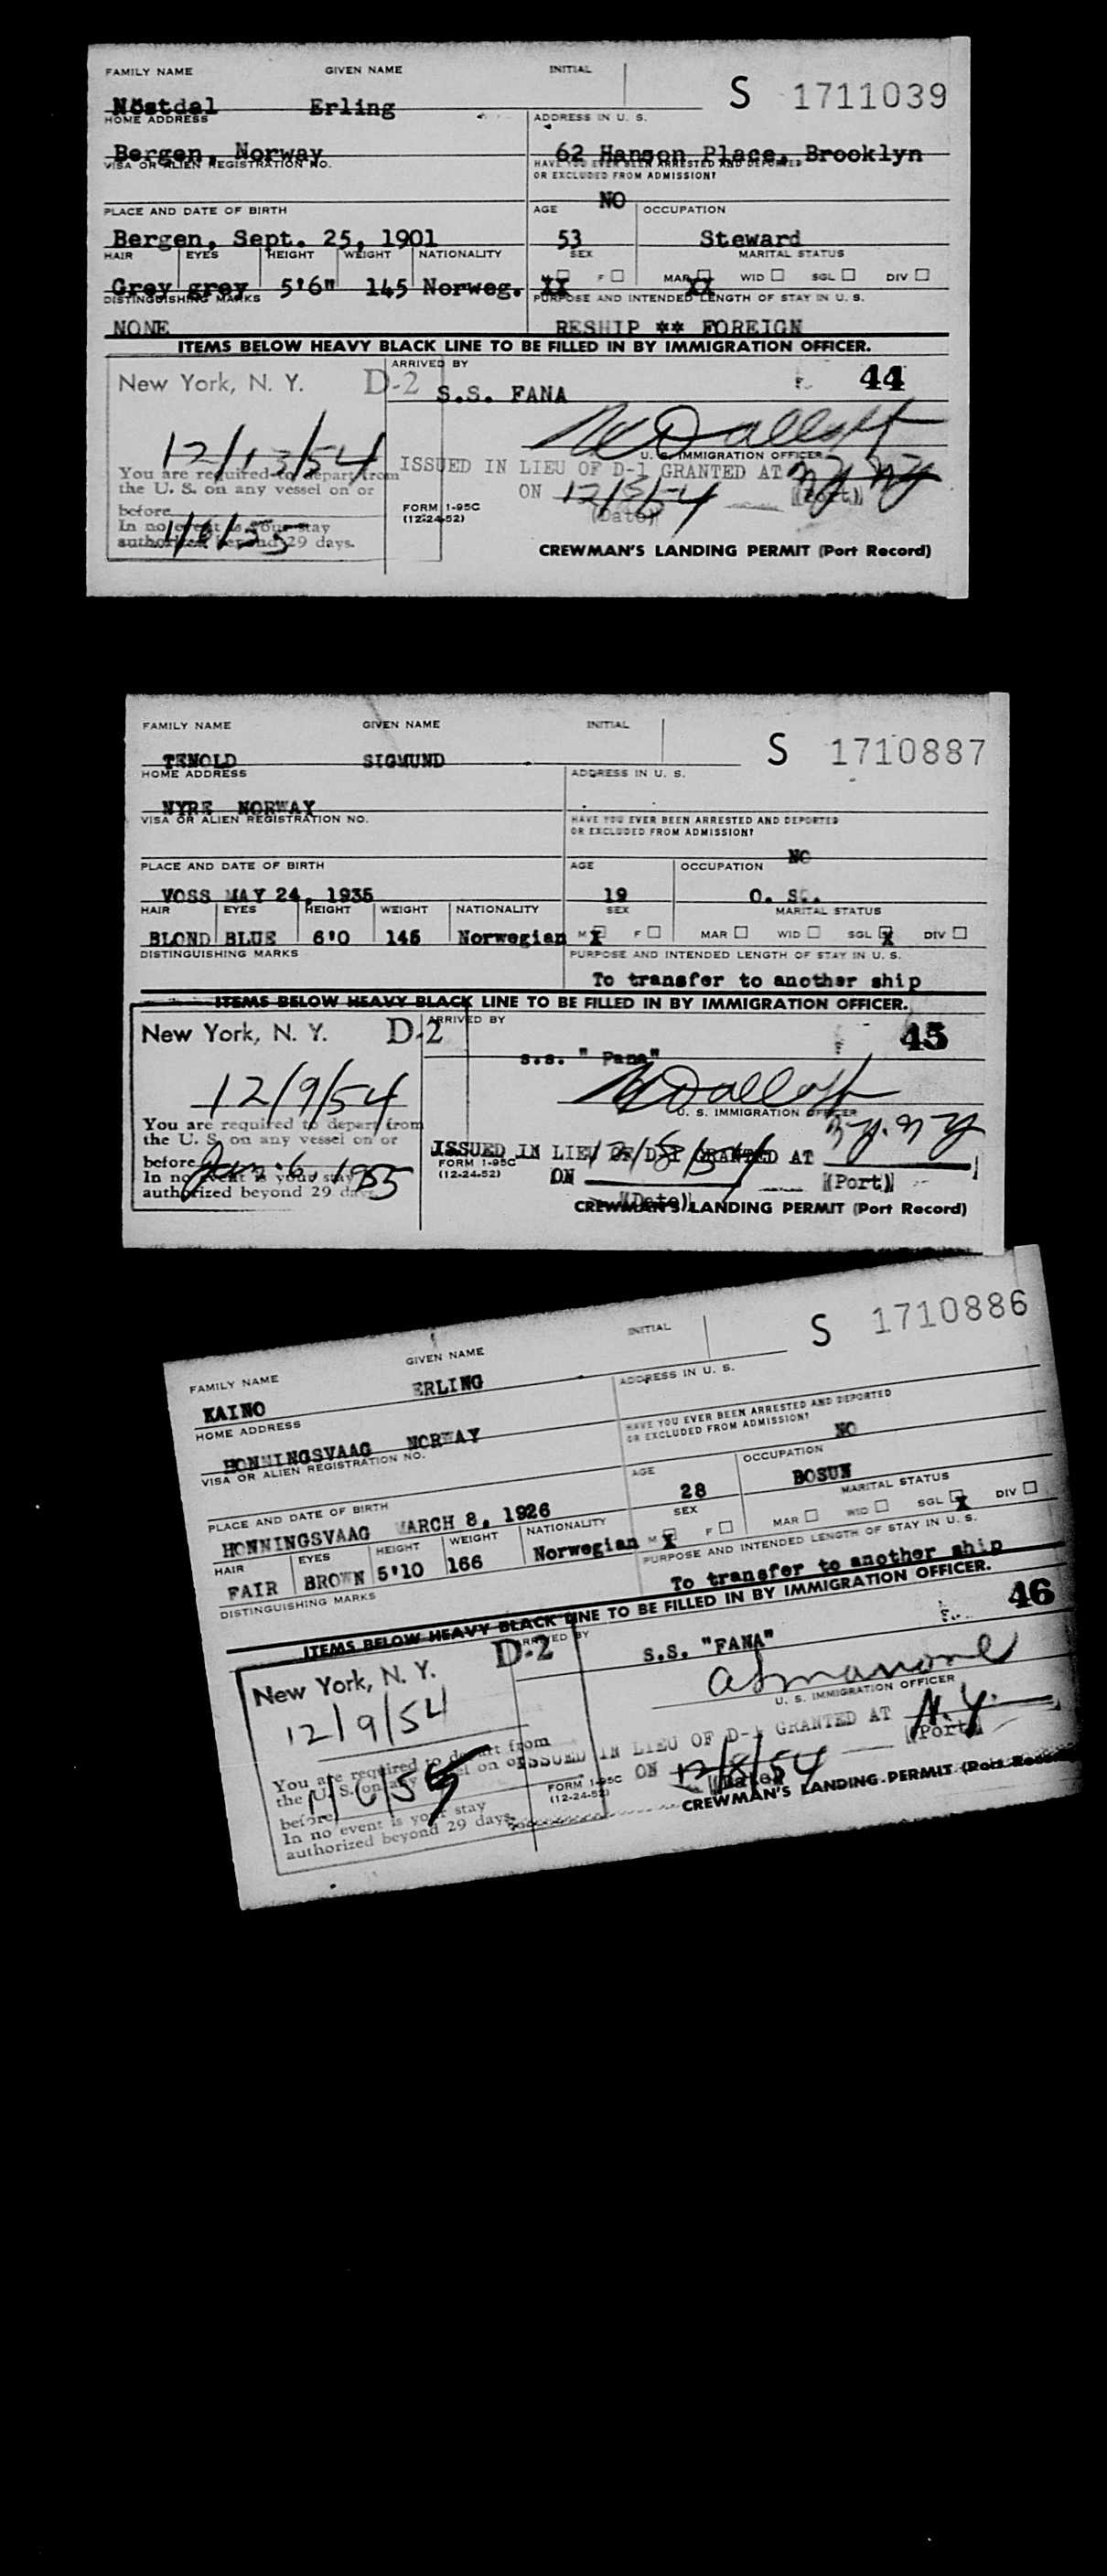 FAMILY NAME GIVEN NAME INITIAL
S 1711039
Nöstdal Erling
HOME ADDRESS ADDRESS IN U. S.
Bergen, Norway 62 Hanson Place, Brooklyn
VISA OR ALIEN REGISTRATION NO. HAVE YOU EVER BEEN ARRESTED AND DEPORTED
OR EXCLUDED FROM ADMISSION?
NO
PLACE AND DATE OF BIRTH AGE OCCUPATION
Bergen, Sept. 25, 1901 53 Steward
HAIR EYES HEIGHT WEIGHT NATIONALITY SEX MARITAL STATUS
M F MAR WID SGL DIV
Grey grey 5'6" 145 Norweg. XX XX
DISTINGUISHING MARKS PURPOSE AND INTENDED LENGTH OF STAY IN U. S.
NONE RESHIP ** FOREIGN
ITEMS BELOW HEAVY BLACK LINE TO BE FILLED IN BY IMMIGRATION OFFICER.
ARRIVED BY
New York, N. Y. D-2 S.S. FANA 44
12/13/54
U. S. IMMIGRATION OFFICER
You are required to depart from ISSUED IN LIEU OF D-1 GRANTED AT N.Y. N.Y.
the U. S. on any vessel on or ON (Port)
before FORM I-95C (Date)
In no event is your stay (12-24-52)
authorized beyond 29 days.
CREWMAN'S LANDING PERMIT (Port Record)
FAMILY NAME GIVEN NAME INITIAL
S 1710887
TENOLD SIGMUND
HOME ADDRESS ADDRESS IN U. S.
NYRE NORWAY
VISA OR ALIEN REGISTRATION NO. HAVE YOU EVER BEEN ARRESTED AND DEPORTED
OR EXCLUDED FROM ADMISSION?
NO
PLACE AND DATE OF BIRTH AGE OCCUPATION
VOSS MAY 24, 1935 19 O. S.
HAIR EYES HEIGHT WEIGHT NATIONALITY SEX MARITAL STATUS
BLOND BLUE 6'0 145 Norwegian M X F MAR WID SGL X DIV
DISTINGUISHING MARKS PURPOSE AND INTENDED LENGTH OF STAY IN U. S.
To transfer to another ship
ITEMS BELOW HEAVY BLACK LINE TO BE FILLED IN BY IMMIGRATION OFFICER.
New York, N. Y. D-2 ARRIVED BY 45
s.s. "Fana"
12/9/54
U. S. IMMIGRATION OFFICER
You are required to depart from N.Y. N.Y.
the U. S. on any vessel on or ISSUED IN LIEU OF D-1 GRANTED AT
12/8/54
before Jan. 6, 1955 FORM I-95C ON (Port)
In no event is your stay (12-24-52)
authorized beyond 29 days. (Date)
CREWMAN'S LANDING PERMIT (Port Record)
INITIAL S 1710886
FAMILY NAME GIVEN NAME
KAINO ERLING
HOME ADDRESS ADDRESS IN U. S.
HONNINGSVAAG NORWAY
VISA OR ALIEN REGISTRATION NO. HAVE YOU EVER BEEN ARRESTED AND DEPORTED
OR EXCLUDED FROM ADMISSION?
NO
PLACE AND DATE OF BIRTH AGE OCCUPATION
HONNINGSVAAG MARCH 8, 1926 28 BOSUN
HAIR EYES HEIGHT WEIGHT NATIONALITY SEX MARITAL STATUS
FAIR BROWN 5'10 166 Norwegian M X F MAR WID SGL X DIV
DISTINGUISHING MARKS PURPOSE AND INTENDED LENGTH OF STAY IN U. S.
To transfer to another ship
ITEMS BELOW HEAVY BLACK LINE TO BE FILLED IN BY IMMIGRATION OFFICER.
D-2 ARRIVED BY S.S. "FANA" 46
New York, N. Y.
12/9/54
U. S. IMMIGRATION OFFICER
You are required to depart from ISSUED IN LIEU OF D-1 GRANTED AT N.Y.
the U. S. on any vessel on or ON 12/8/54 (Port)
before 1/6/55 FORM I-95C (Date)
In no event is your stay (12-24-52)
authorized beyond 29 days.
CREWMAN'S LANDING PERMIT (Port Record)